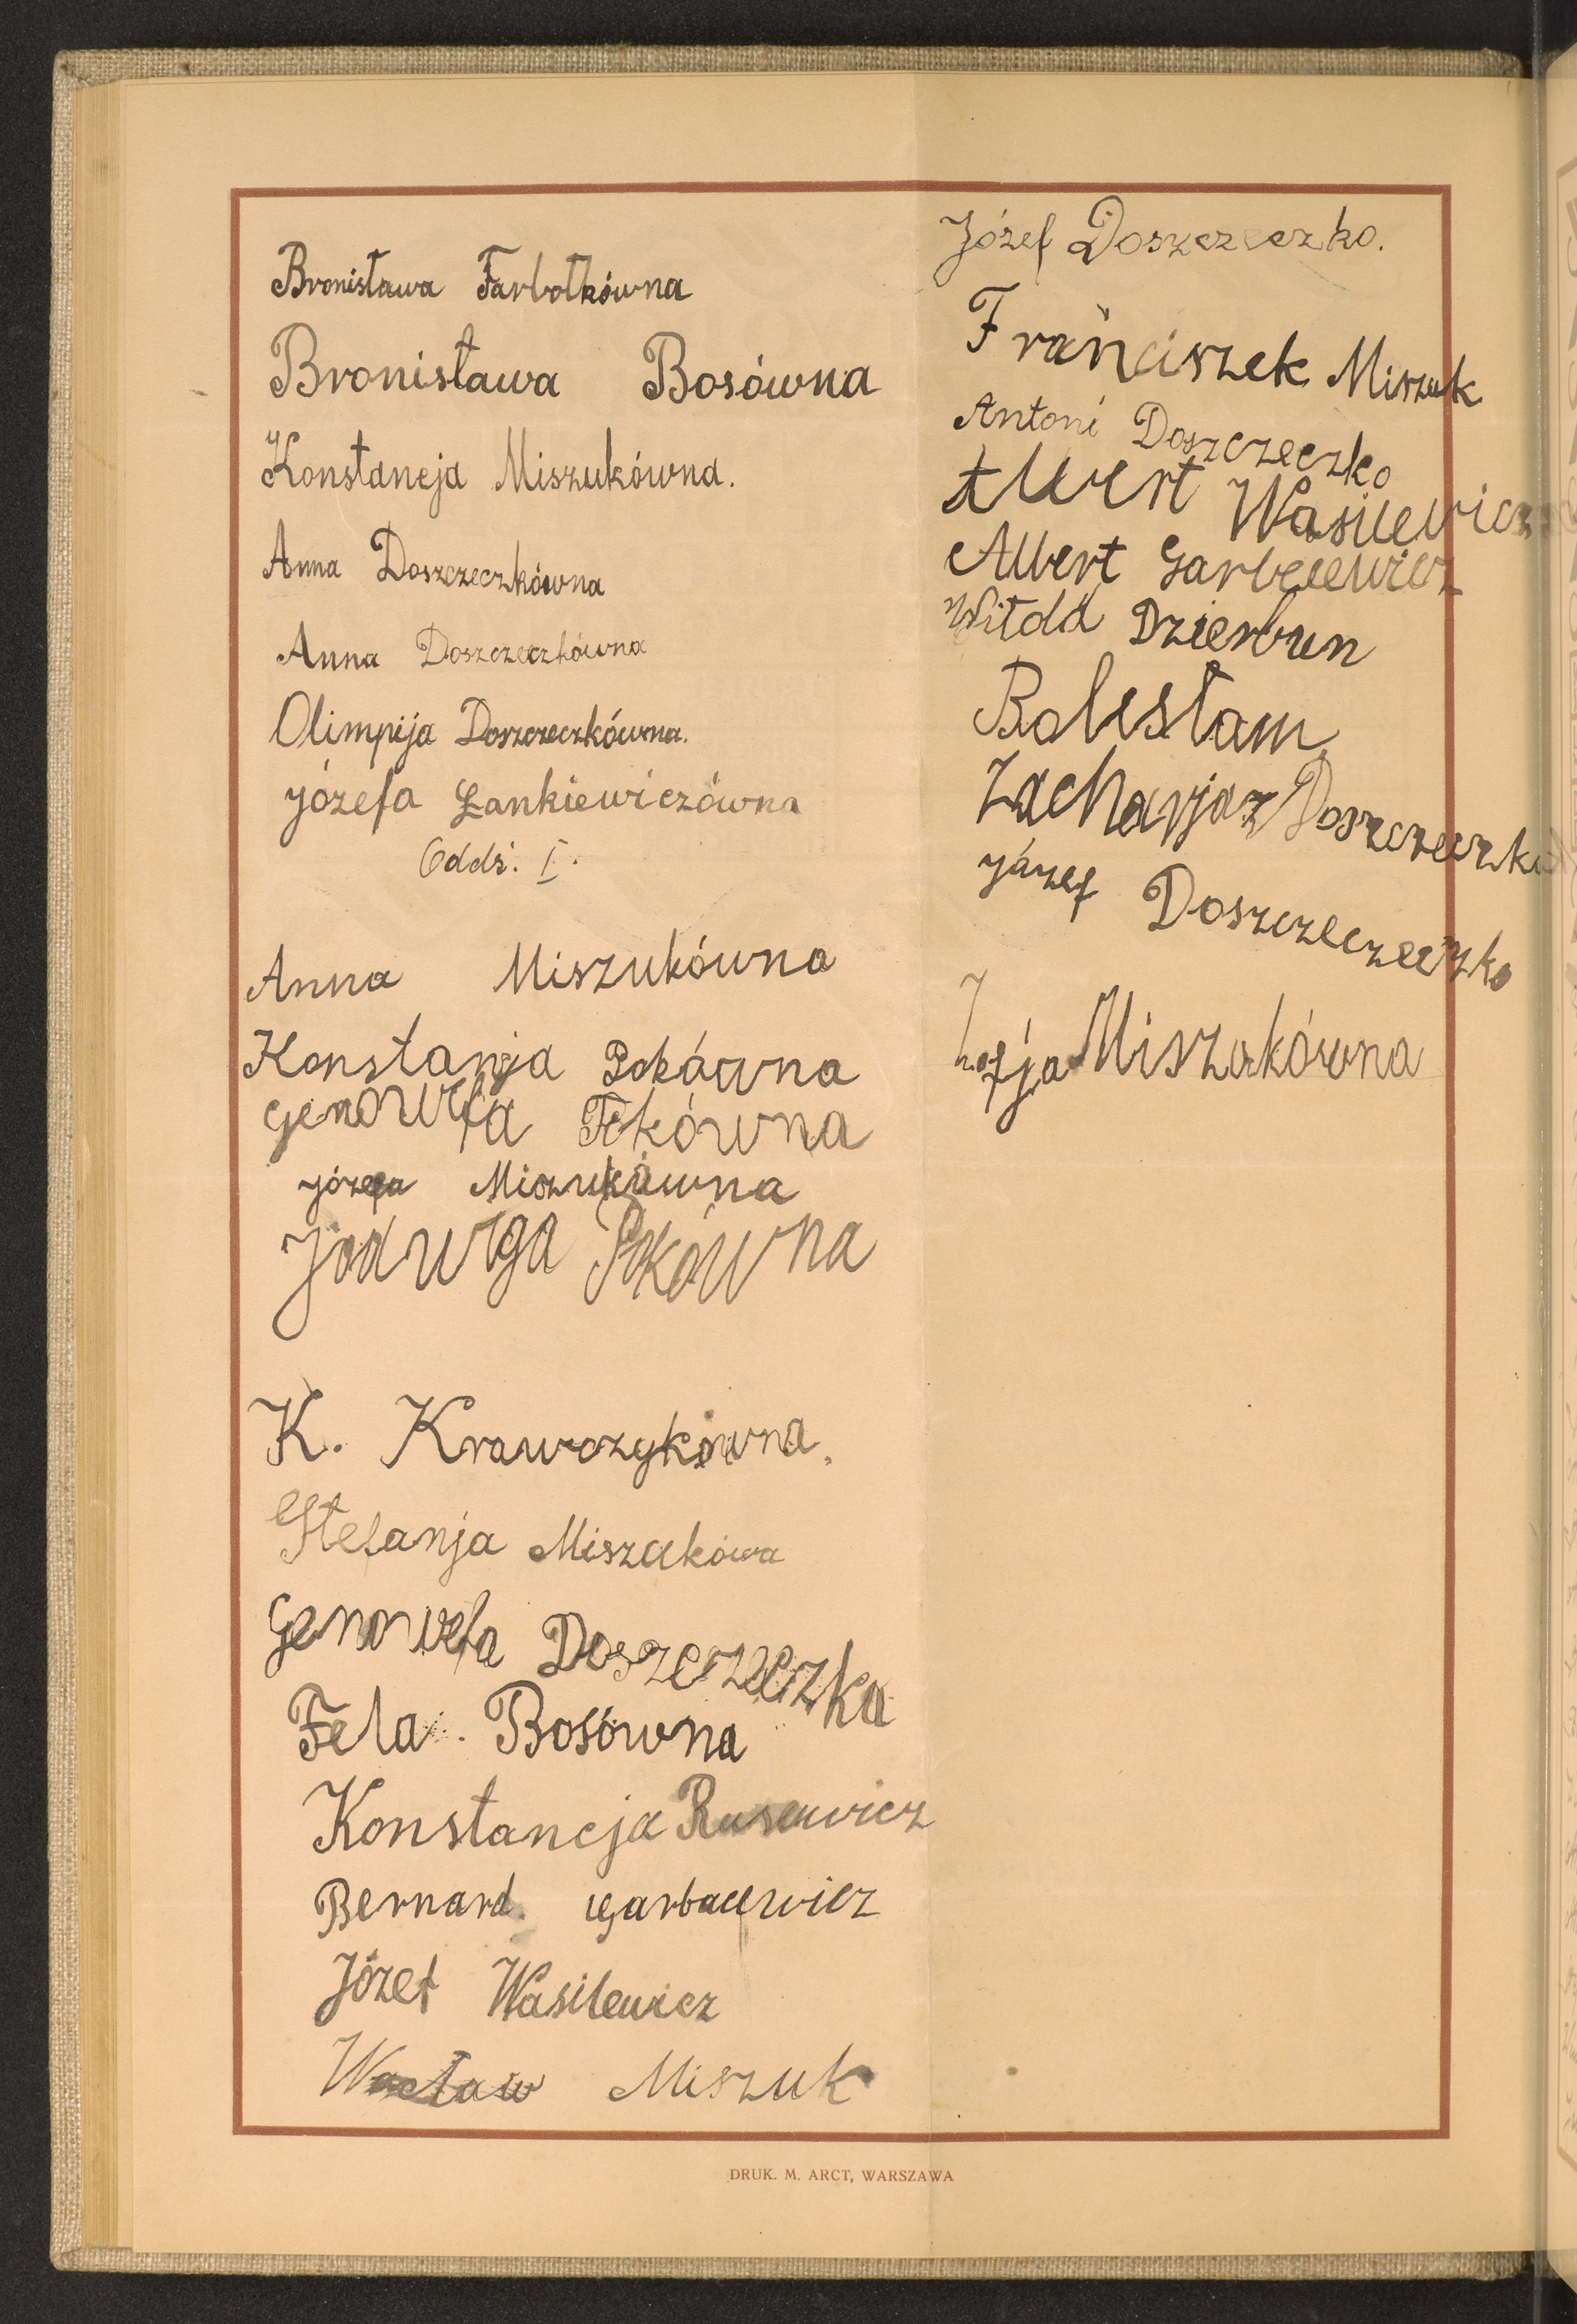 Bronisława Farbotkówna
Bronisława Bosówna
Konstancja Miszukówna.
Anna Doszczeczkówna
Anna Doszczeczkówna
Olimpija Doszczeczkówna.
Józefa Łankiewiczówna
Oddz. I.
Anna Miszukówna
Konstanja
Genowefa
Józefa Miszukówna
Jadwiga
K. Krawczykówna.
Stefanja Miszukówa
Genowefa Doszczeczka
Fela. Bosówna
Konstancja Rusewicz
Bernard. Garbacewicz
Józef Wasilewicz
Wacław Miszuk
Józef Doszczeczko.
Franciszek Miszuk
Antoni Doszczeczko
Albert Wasilewicz
Albert Garbecewicz
Witold Dzierbun
Bolesław
Zacharjaz Doszczeczko
Józef Doszczeczeczko
Zofja Miszukówna
DRUK. M. ARCT, WARSZAWA